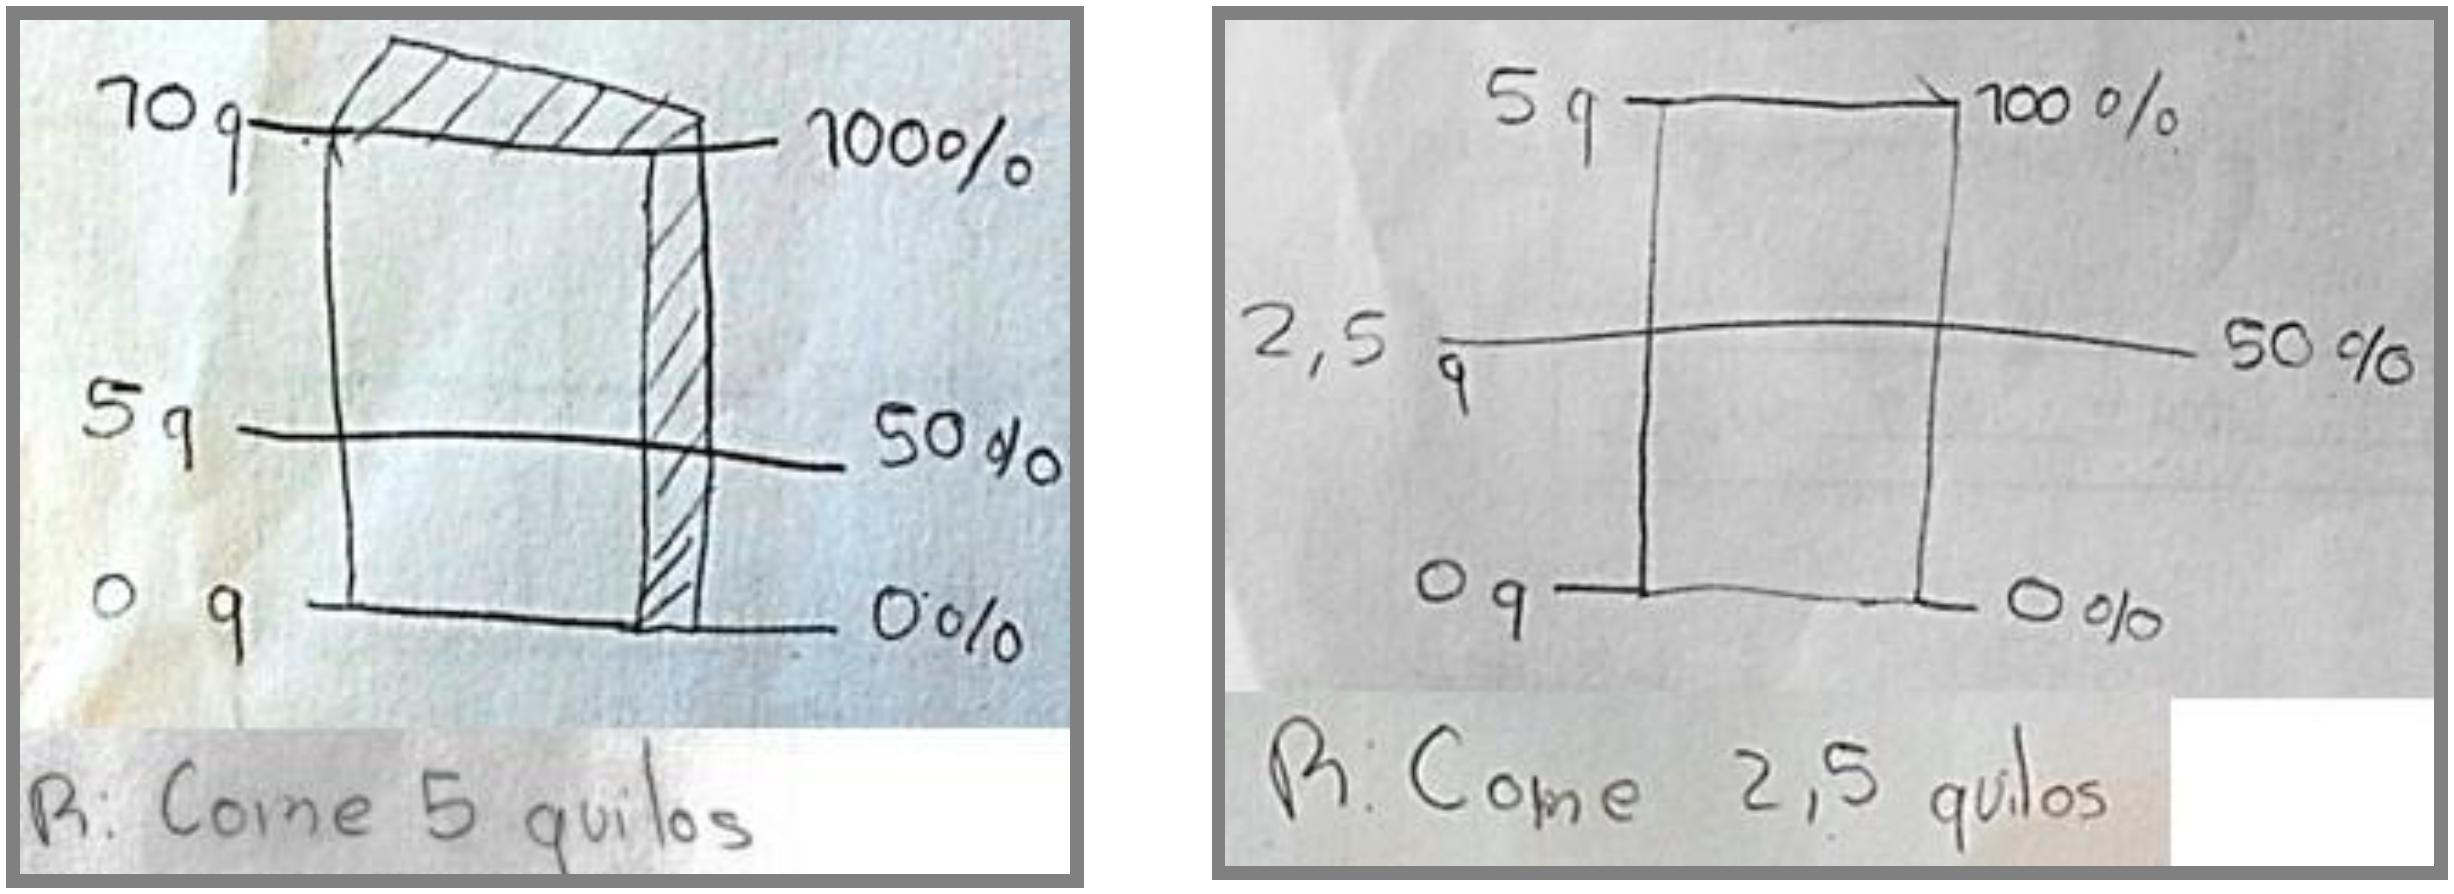 10 q 100%
5 q 50%
0 q 0%
R: Come 5 quilos
5 q 100%
2,5 q 50%
0 q 0%
R: Come 2,5 quilos